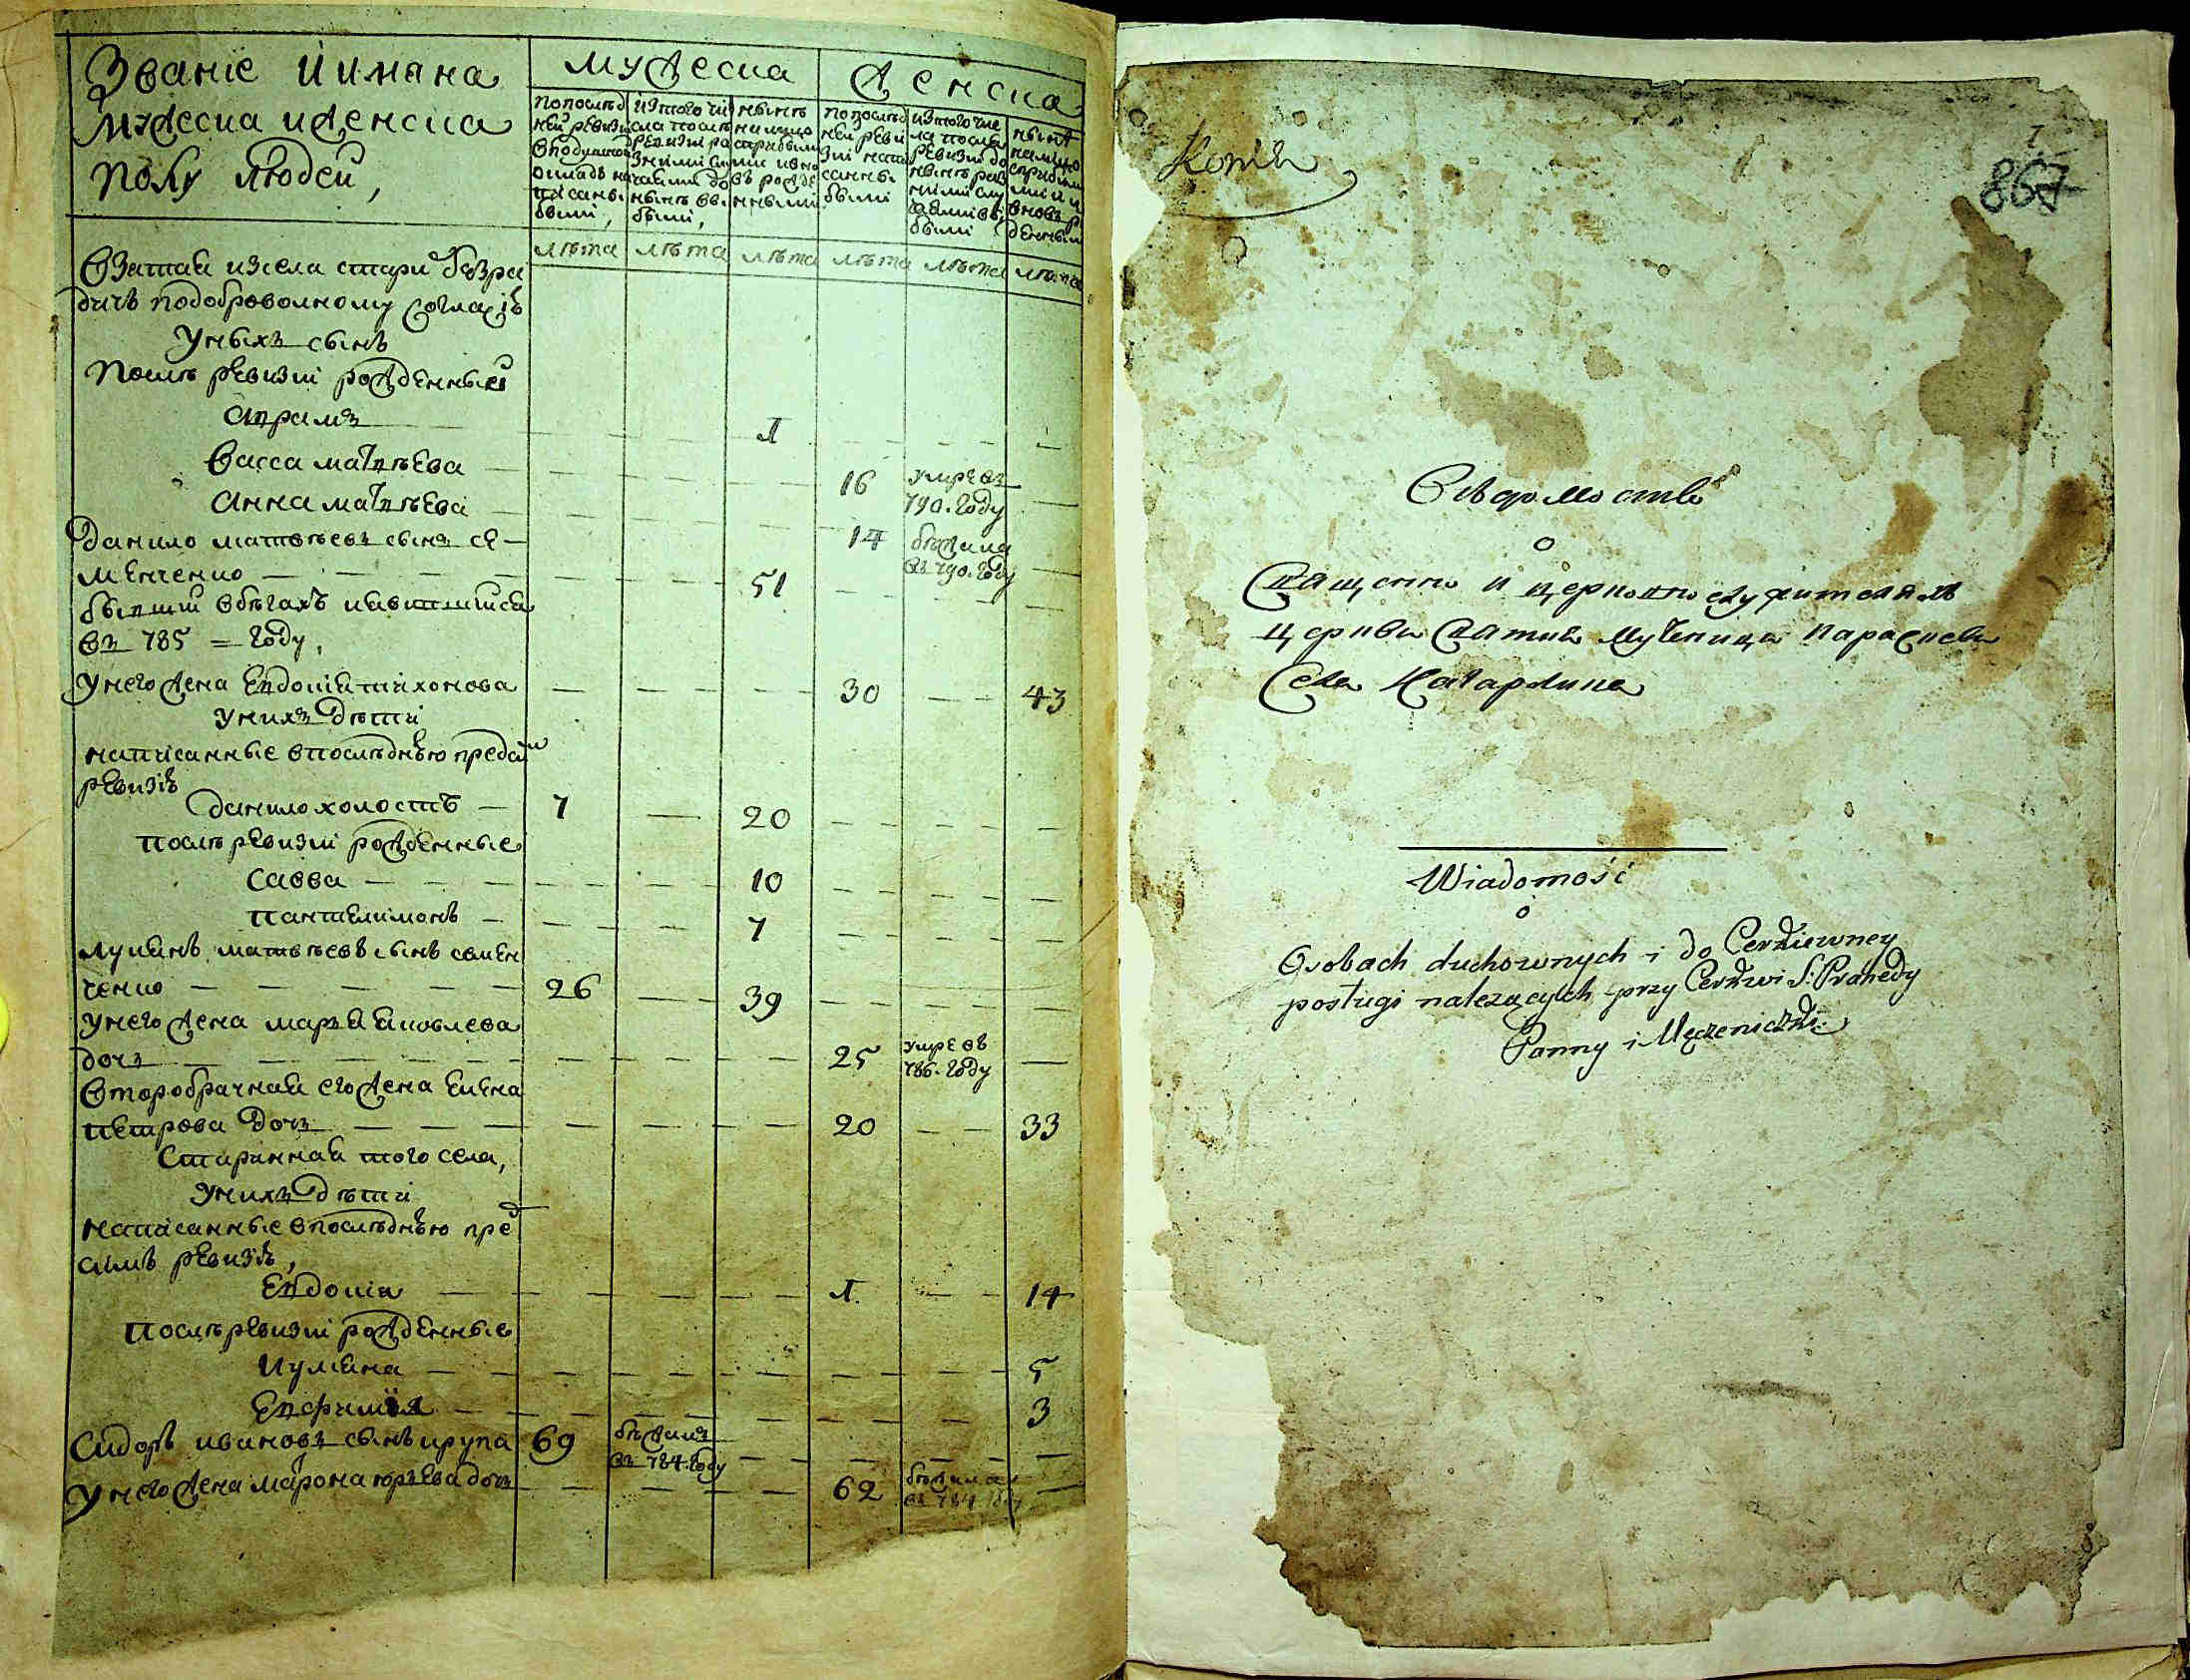 Званіе и имяна
мужеска и женска
полу людей,
мужеска
женска
по послѣд
ней ревизи
в подушной
окладъ на
писаны
были,
ис того чи
сла послѣ
ревизіи ра
зными слу
чаями до
нынѣ вы
были,
нынѣ
на лицо
с прибыл
ми и вно
въ рожде
нными
по послѣд
ней реви
зіи напи
санны
были
ис того чис
ла после
ревизіи до
нынѣ раз
ними слу
чаями вы
были
нынѣ
на лицо
с прибыл
ми и
вновь ро
жденными
лѣта лѣта лѣта лѣта лѣта лѣта
Взятая из села стари безра
дичъ по добровольному согласію
У ныхъ сынъ
Послѣ ревизіи рожденный
Авраамъ 1
Васса матвѣева 16 умре въ
790. году
Анна матвѣева 14 бѣжала
въ 790. году
Данило матвѣевъ сынъ се-
менченко 51
бывший в бѣгахъ и явившийся
въ 785 = году,
У него жена Евдокія тихонова 30 43
У нихъ дѣти
написанные в последнюю пред сим
ревизію
Данило холостъ 7 20
послѣ ревизіи рожденные
Савва 10
пантелимонъ 7
лукянъ матвѣевъ сынъ семен
ченко 26 39
У него жена маръя яковлева
дочь 25 умре въ
786. году
Второбрачная его жена Елена
петрова дочь 20 33
Старинная того села,
У нихъ дѣти
написанные в последнюю пред
симъ ревизію,
Евдокія 1 14
послѣ ревизіи рожденные
Иулияна 5
Евфимія 3
Сидоръ ивановъ сынъ крупа 69 бѣжалъ
въ 784. году
У него жена марона юрьева дочь 62 бѣжала
въ 784 году
Копія
1
867
Вѣдомость
о
Священно и церковнослужителяхъ
церкви Святыя Мученицы Параскевы
Села Кагарлика
Wiadomość
o
Osobach duchownych i do Cerkiewney
posługi należących przy Cerkwi S: Praxedy
Panny i Męczeniczki